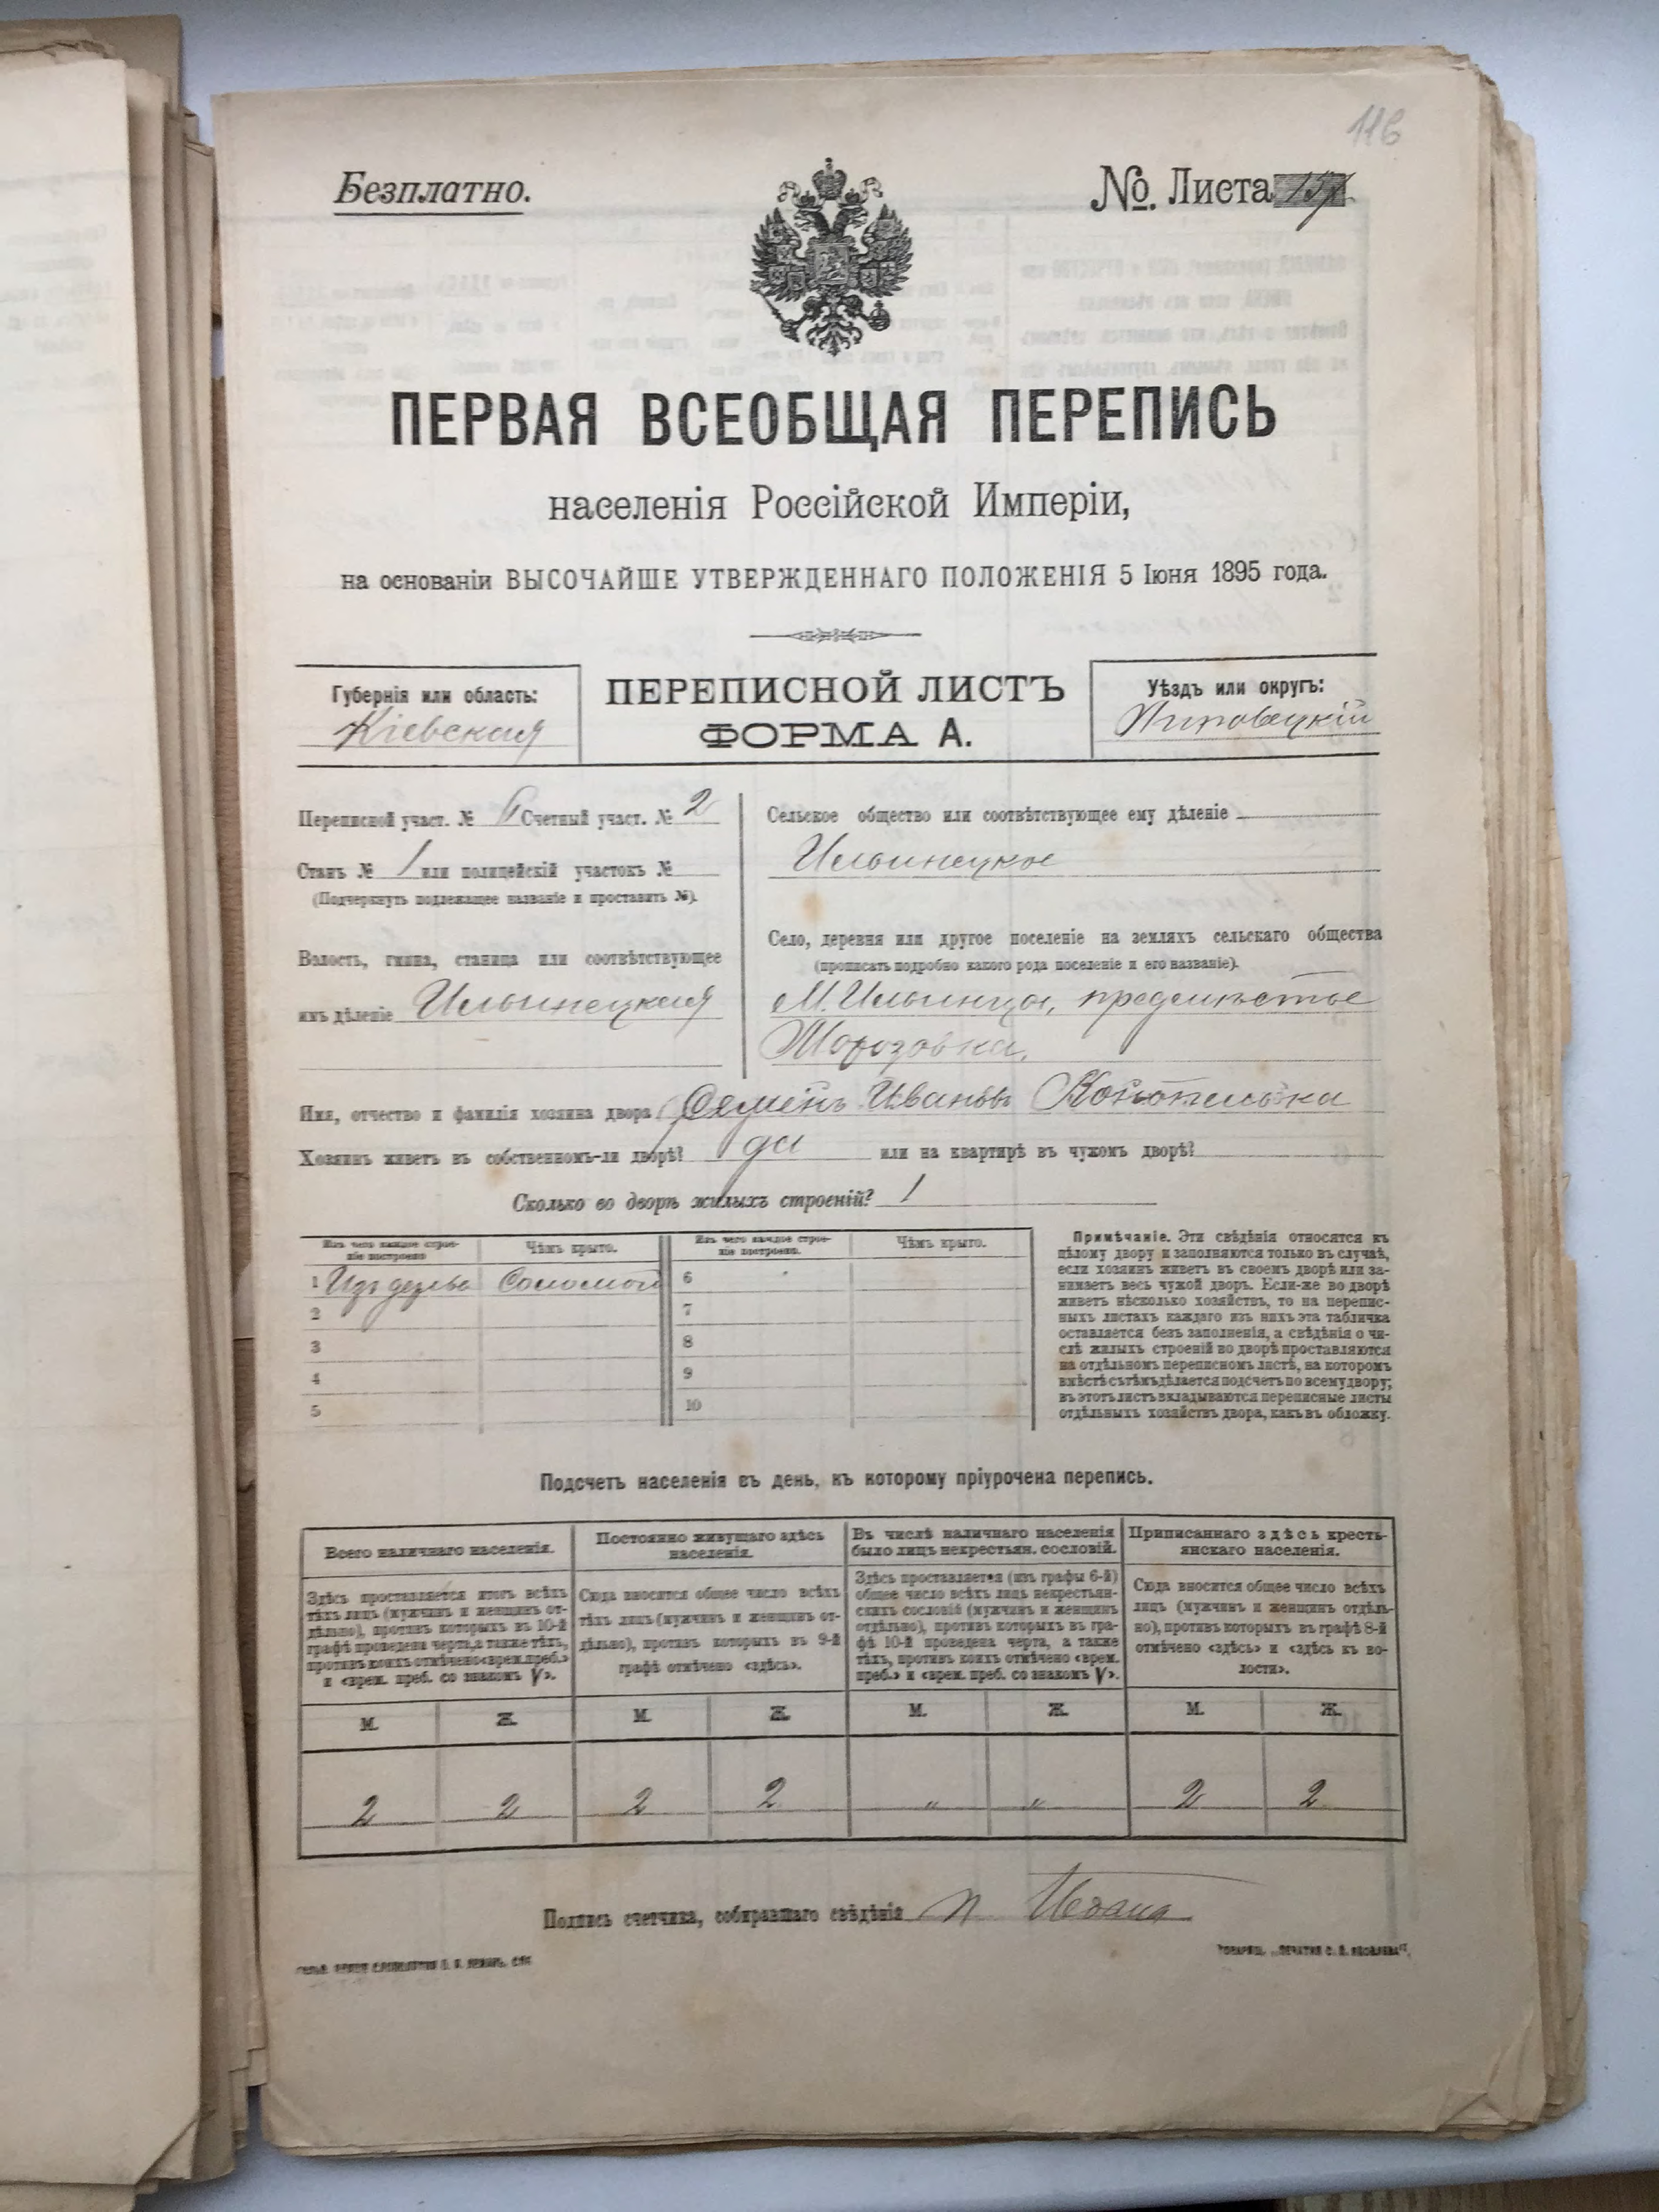 116
Безплатно.
№ Листа
ПЕРВАЯ ВСЕОБЩАЯ ПЕРЕПИСЬ
населенія Россійской Имперіи,
на основаніи ВЫСОЧАЙШЕ УТВЕРЖДЕННАГО ПОЛОЖЕНІЯ 5 Іюня 1895 года.
Губернія или область:
Кіевская
ПЕРЕПИСНОЙ ЛИСТЪ
ФОРМА А.
Уѣздъ или округъ:
Липовецкій
Переписной участ. № Счетный участ. № 2
Станъ № 1 или полицейскій участокъ №
(Подчеркнуть подлежащее названіе и проставить №).
Волость, гмина, станица или соотвѣтствующее
имъ дѣленіе Ильинецкая
Сельское общество или соотвѣтствующее ему дѣленіе
Ильинецкое
Село, деревня или другое поселеніе на земляхъ сельскаго общества
(прописать подробно какого рода поселеніе и его названіе).
М. Ильинцы, предмѣстье
Морозовка.
Имя, отчество и фамилія хозяина двора Семенъ Ивановъ
Хозяинъ живетъ въ собственномъ-ли дворѣ? да или на квартирѣ въ чужомъ дворѣ?
Сколько во дворѣ жилыхъ строеній? 1
Изъ чего каждое строе-
ніе построено
Чѣмъ крыто.
Изъ чего каждое строе-
ніе построено.
Чѣмъ крыто.
1 Изъ дерева Соломой 6
2 7
3 8
4 9
5 10
Примѣчаніе. Эти свѣдѣнія относятся къ
цѣлому двору и заполняются только въ случаѣ,
если хозяинъ живетъ въ своемъ дворѣ или за-
нимаетъ весь чужой дворъ. Если-же во дворѣ
живетъ нѣсколько хозяйствъ, то на перепис-
ныхъ листахъ каждаго изъ нихъ эта табличка
оставляется безъ заполненія, а свѣдѣнія о чи-
слѣ жилыхъ строеній во дворѣ проставляются
на отдѣльномъ переписномъ листѣ, на которомъ
вмѣстѣ съ тѣмъ дѣлается подсчетъ по всему двору;
въ этотъ листъ вкладываются переписные листы
отдѣльныхъ хозяйствъ двора, какъ въ обложку.
Подсчетъ населенія въ день, къ которому пріурочена перепись.
Всего наличнаго населенія.
Здѣсь проставляется итогъ всѣхъ
тѣхъ лицъ (мужчинъ и женщинъ от-
дѣльно), противъ которыхъ въ 10-й
графѣ проведена черта, а также тѣхъ,
противъ коихъ отмѣчено «врем. преб.»
и «врем. преб. со знакомъ V».
Постоянно живущаго здѣсь
населенія.
Сюда вносится общее число всѣхъ
тѣхъ лицъ (мужчинъ и женщинъ от-
дѣльно), противъ которыхъ въ 9-й
графѣ отмѣчено «здѣсь».
Въ числѣ наличнаго населенія
было лицъ некрестьян. сословій.
Здѣсь проставляется (изъ графы 6-й)
общее число всѣхъ лицъ некрестьян-
скихъ сословій (мужчинъ и женщинъ
отдѣльно), противъ которыхъ въ гра-
фѣ 10-й проведена черта, а также
тѣхъ, противъ коихъ отмѣчено «врем.
преб.» и «врем. преб. со знакомъ V».
Приписаннаго здѣсь кресть-
янскаго населенія.
Сюда вносится общее число всѣхъ
лицъ (мужчинъ и женщинъ отдѣль-
но), противъ которыхъ въ графѣ 8-й
отмѣчено «здѣсь» и «здѣсь къ во-
лости».
М. Ж. М. Ж. М. Ж. М. Ж.
2 2 2 2 „ „ 2 2
Подпись счетчика, собиравшаго свѣдѣнія